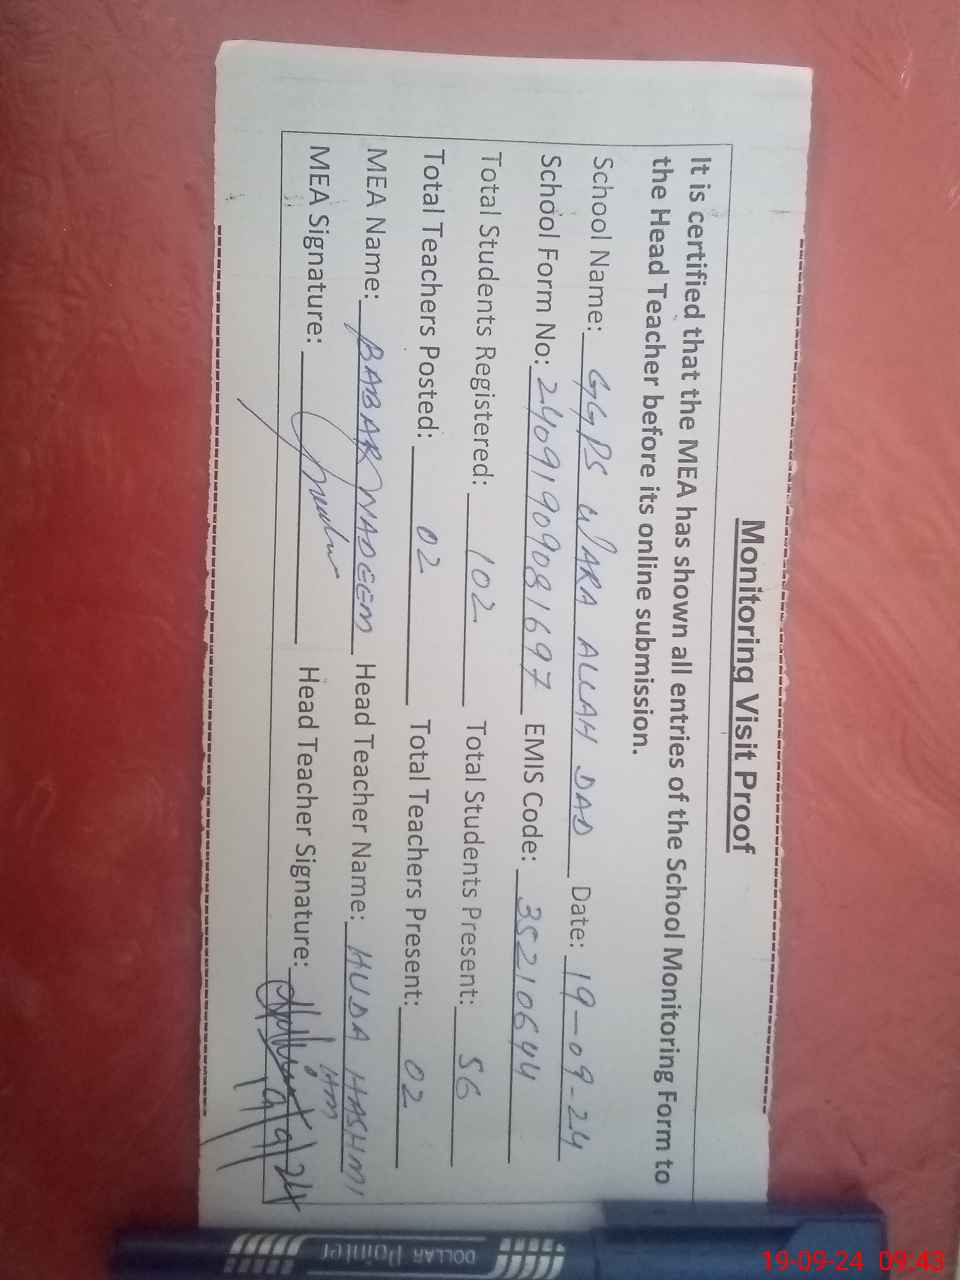 Monitoring Visit Proof
It is certified that the MEA has shown all entries of the School Monitoring Form to
the Head Teacher before its online submission.
School Name: GGPS WARA ALLAH DAD Date: 19-09-24
School Form No: 24091909081697 EMIS Code: 35210644
Total Students Registered: 102 Total Students Present: 56
Total Teachers Posted: 02 Total Teachers Present: 02
MEA Name: BABAR NADEEM Head Teacher Name: HUDA HASHMI
MEA Signature: Head Teacher Signature: HM
19/9/24
DOLLAR Pointer
19-09-24 09:43